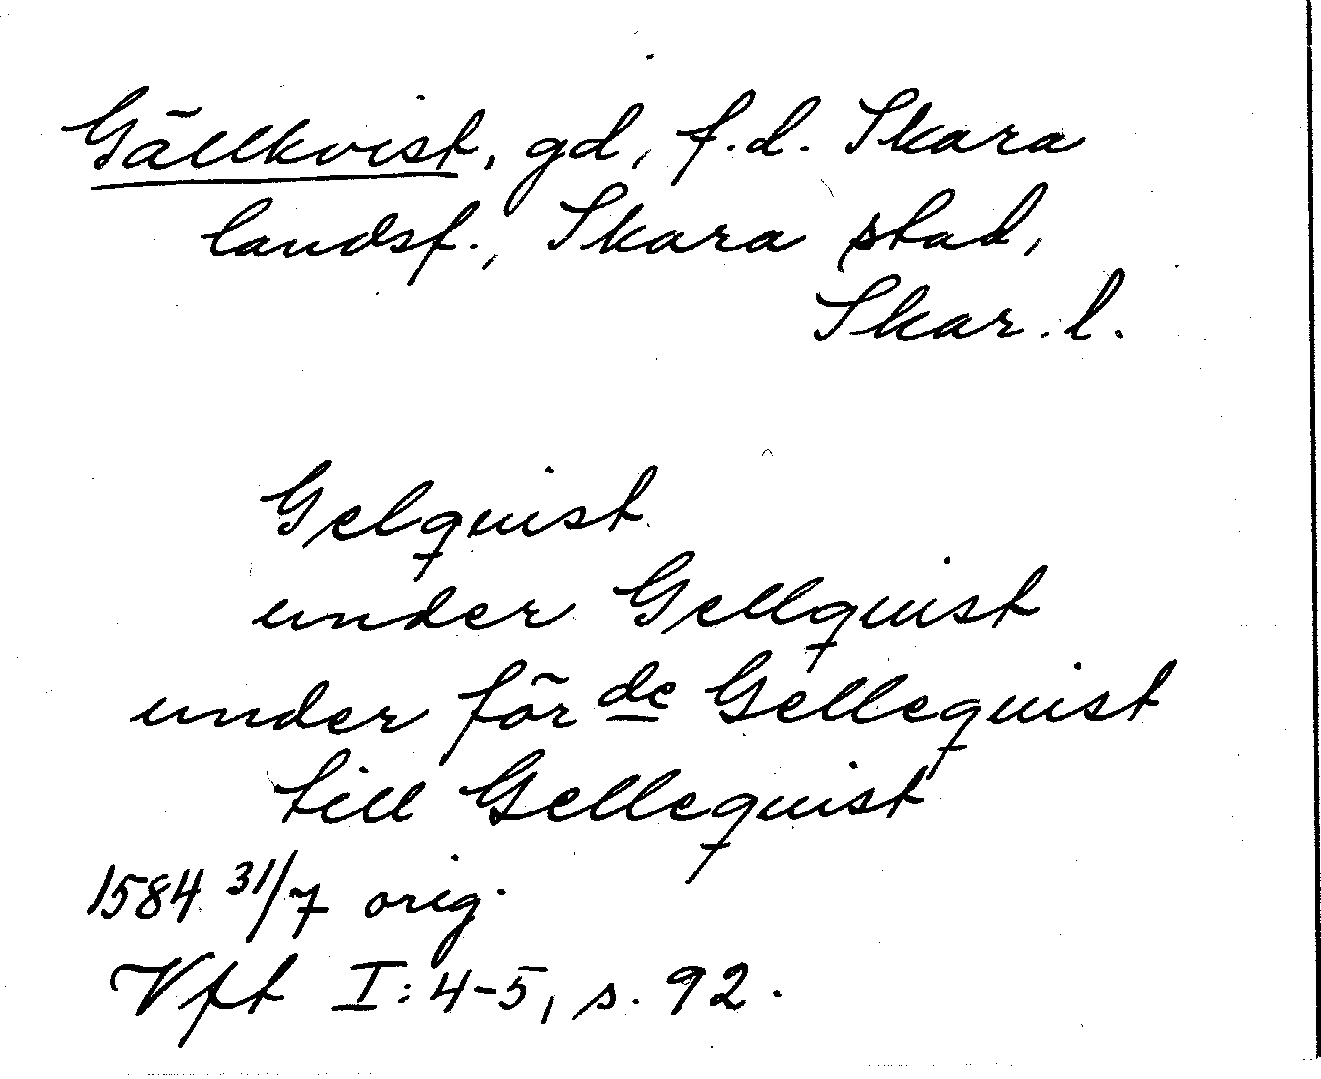 Gällkvist, gd, f.d. Skara
landsf., Skara stad,
Skar. l.
Gelquist
under Gellquist
under förde Gellequist
till Gellequist
1584 31/7 orig.
Vft I:4-5, s. 92.